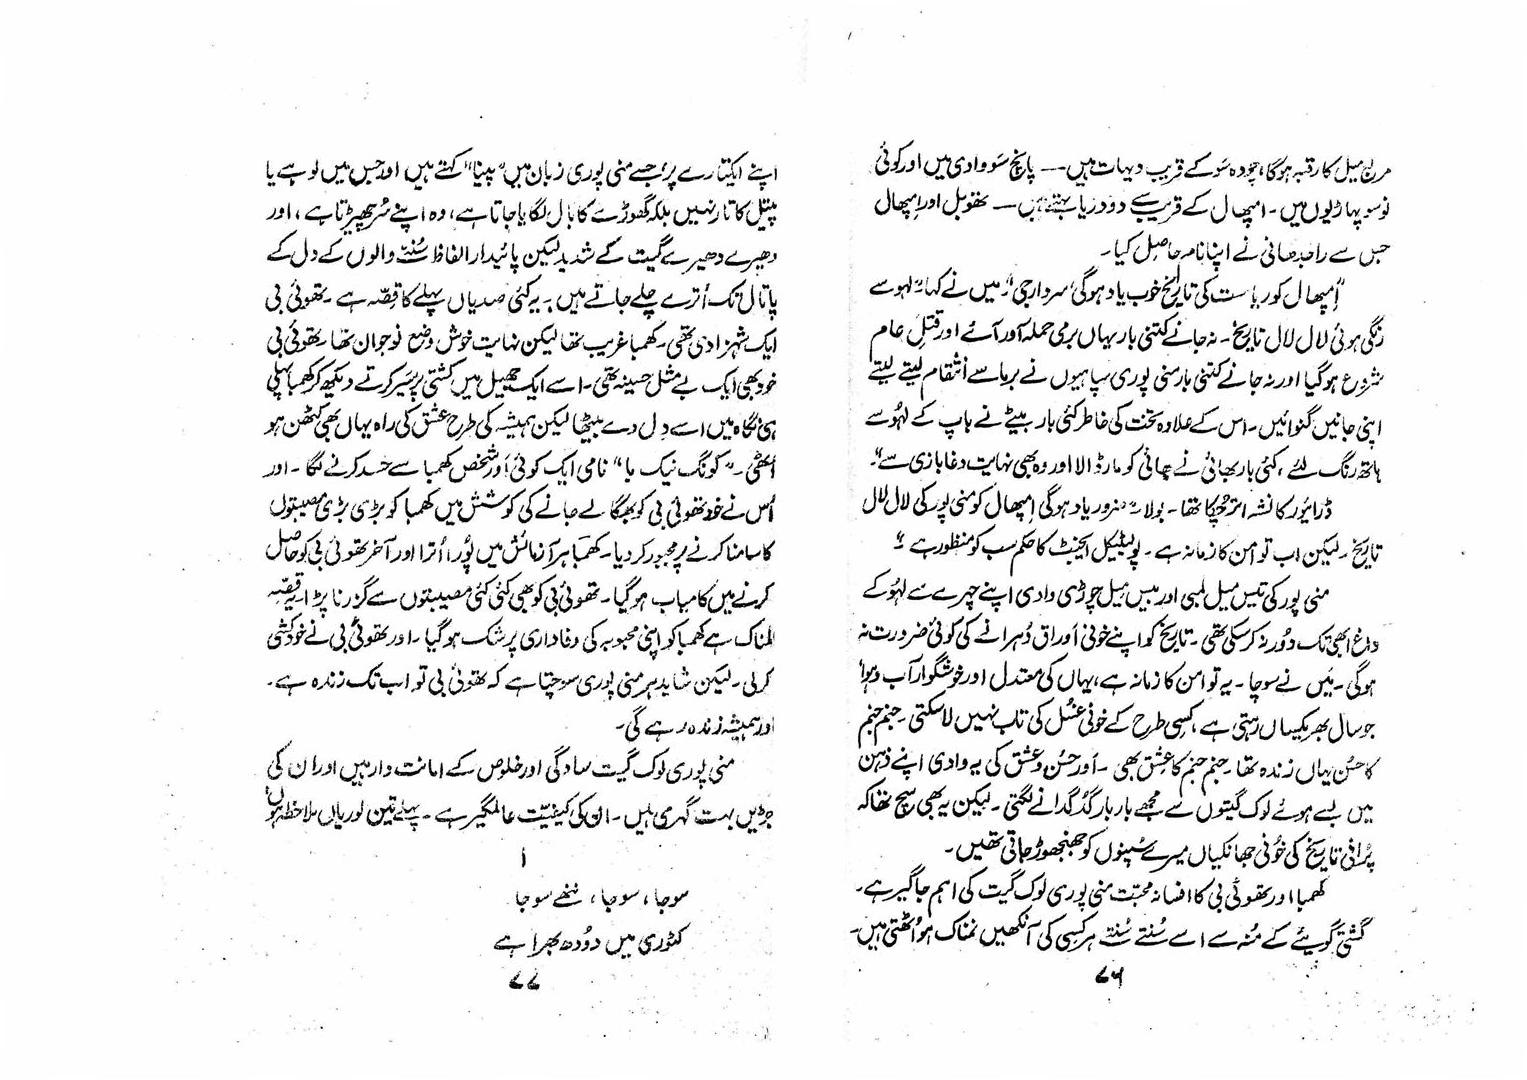 مربع میل کا رقبہ ہوگا، چودہ سَو کے قریب دیہات ہیں ـــ پانچ سَو وادی میں اور کوئی
نو سو پہاڑیوں میں۔ امپھال کے قریب سے دو دریا بہتے ہیں ـــ تھوبل اور امپھال
جس سے راجدھانی نے اپنا نام حاصِل کیا۔
"اِمپھال کو ریاست کی تاریخ خوب یاد ہوگی، سردارجی"، میں نے کہا۔ "لہو سے
رنگی ہوئی لال لال تاریخ۔ نہ جانے کتنی بار یہاں برمی حملہ آور آئے اور قتلِ عام
شروع ہوگیا اور نہ جانے کتنی بار منی پوری سپاہیوں نے برما سے انتقام لیتے لیتے
اپنی جانیں گنوائیں۔ اس کے علاوہ تخت کی خاطر کئی بار بیٹے نے باپ کے لہُو سے
ہاتھ رنگ لئے، کئی بار بھائی نے بھائی کو مار ڈالا اور وہ بھی نہایت دغابازی سے"۔
ڈرائیور کا نشہ اتر چُکا تھا۔ بولا۔ "ضرور یاد ہوگی اِمپھال کو منی پور کی لال لال
تاریخ۔ لیکن اب تو امن کا زمانہ ہے۔ پولیٹیکل ایجنٹ کا حکم سب کو منظور ہے"۔
منی پور کی تیس میل لمبی اور بیس میل چوڑی وادی اپنے چہرے سے لہُو کے
داغ ابھی تک دُور نہ کرسکی تھی۔ تاریخ کو اپنے خونی اَوراق دُہرانے کی کوئی ضرورت نہ
ہوگی۔ مَیں نے سوچا۔ یہ تو امن کا زمانہ ہے، یہاں کی معتدل اور خوشگوار آب و ہوا
جو سال بھر یکساں رہتی ہے، کسی طرح کے خونی غسُل کی تاب نہیں لاسکتی۔ جنم جنم
کا حسُن یہاں زندہ تھا۔ جنم جنم کا عِشق بھی۔ اَور حسُن و عشق کی یہ وادی اپنے ذہن
میں بسے ہوئے لوک گیتوں سے مجھے بار بار گُدگُدانے لگتی۔ لیکن یہ بھی سچ تھا کہ
پُرانی تاریخ کی خُونی جھانکیاں میرے سُپنوں کو جھنجھوڑ جاتی تھیں۔
کھمبا اور تھوئی بی کا افسانہ محبت منی پوری لوک گیت کی اہم جاگیر ہے۔
گشتی گویّے کے مُنہ سے اسے سُنتے سُنتے ہر کسِی کی آنکھیں نمناک ہو اُٹھتی ہیں۔
۷۶
اپنے ایکتارے پر، جسے منی پوری زبان میں "پینا" کہتے ہیں اور جس میں لوہے یا
پیتل کا تار نہیں بلکہ گھوڑے کا بال لگایا جاتا ہے، وہ اپنے سُر چھیڑتا ہے، اور
دھیرے دھیرے گیت کے شدید لیکن پائیدار الفاظ سُننے والوں کے دل کے
پاتال تک اُترے چلے جاتے ہیں۔ یہ کئی صدیاں پہلے کا قِصّہ ہے۔ تھوئی بی
ایک شہزادی تھی۔ کھمبا غریب تھا لیکن نہایت خوش وضع نوجوان تھا۔ تھوئی بی
خود بھی ایک بے مثل حسینہ تھی۔ اسے ایک جھیل میں کشتی پر سیَر کرتے دیکھ کر کھمبا پہلی
ہی نگاہ میں اسے دِل دے بیٹھا لیکن ہمیشہ کی طرح عشق کی راہ یہاں بھی کٹھن ہو
اُٹھی۔ "کونگ نیک با" نامی ایک کوئی اَور شخص کھمبا سے حسد کرنے لگا۔ اور
اُس نے خود تھوئی بی کو بھگا لے جانے کی کوشش میں کھمبا کو بڑی بڑی مصیبتوں
کا سامنا کرنے پر مجبور کر دیا۔ کھمبا ہر آزمائش میں پُورا اُترا اور آخر تھوئی بی کو حاصل
کرنے میں کامیاب ہوگیا۔ تھوئی بی کو بھی کئی کئی مصیبتوں سے گزرنا پڑا۔ یہ قِصّہ
المناک ہے کھمبا کو اپنی محبوبہ کی وفاداری پر شک ہوگیا۔ اور تھوئی بی نے خودکشی
کرلی۔ لیکن شاید ہر منی پوری سوچتا ہے کہ تھوئی بی تو اب تک زندہ ہے۔
اور ہمیشہ زندہ رہے گی۔
منی پوری لوک گیت سادگی اور خلوص کے امانت دار ہیں اور ان کی
جڑیں بہت گہری ہیں۔ ان کی کیفیّت عالمگیر ہے۔ پہلے تین لوریاں ملاحظہ ہوں:
۱
سوجا، سوجا، ننھے سوجا
کٹوری میں دُودھ بھرا ہے
۷۷